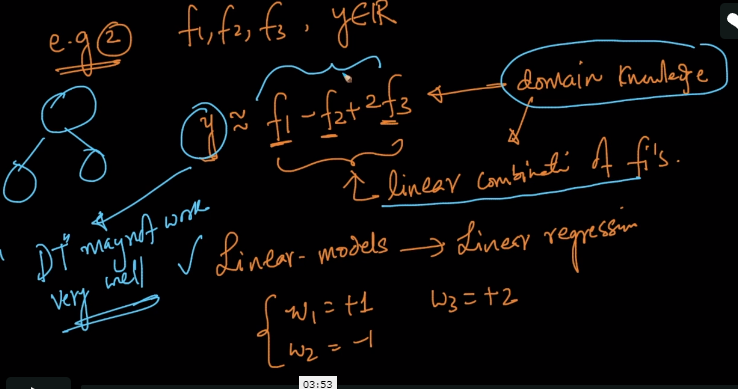 e.g ② f1, f2, f3, y∈ℝ
y ≈ f1 - f2 + 2f3 ← domain knowledge
linear combinati of fi's.
DT may not work very well
✓ Linear-models → Linear regression
w1 = +1 w3 = +2
w2 = -1
03:53